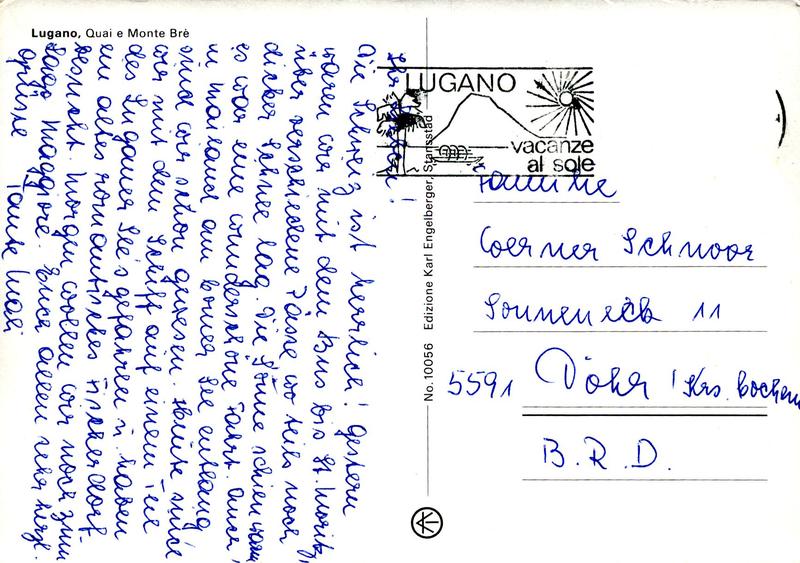 Lugano, Quai e Monte Brè
Ihr Lieben!
Die Schweiz ist herrlich! Gestern
waren wir mit dem Bus bis St. Moritz,
über verschiedene Pässe wo teils noch
dicker Schnee lag. Die Sonne schien warm
es war eine wunderschöne Fahrt. Auch
in Mailand am Comer See entlang
sind wir schon gewesen. Heute sind
wir mit dem Schiff auf einem Teil
des Luganer See's gefahren u. haben
ein altes romantisches Fischerdorf
besucht. Morgen wollen wir noch zum
Lago Maggiore. Euch allen sehr herzl.
Grüsse
Tante
No. 10056 Edizione Karl Engelberger, Stansstad
LUGANO
vacanze
al sole
Familie
Werner Schnoor
Sonneneck 11
5591 (Krs. Cochem
B.R.D.